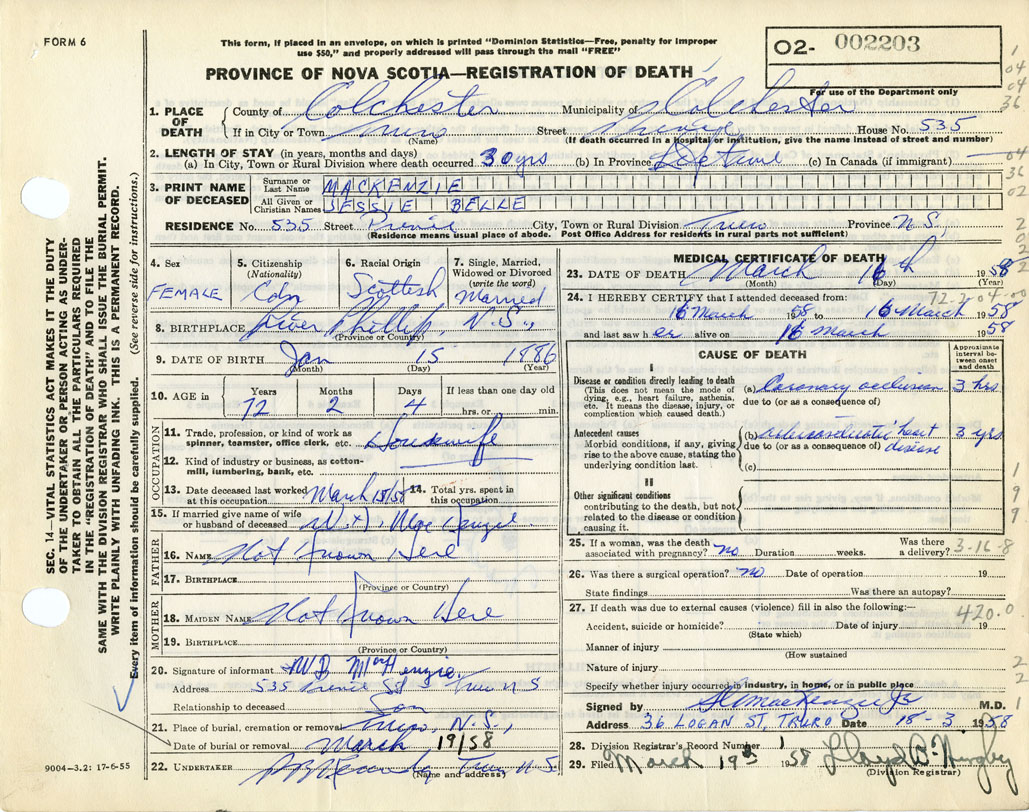 FORM 6
This form, if placed in an envelope, on which is printed "Dominion Statistics—Free, penalty for improper
use $50," and properly addressed will pass through the mail "FREE"
O2- 002203
For use of the Department only
PROVINCE OF NOVA SCOTIA—REGISTRATION OF DEATH
1. PLACE OF DEATH County of Colchester Municipality of Colchester
If in City or Town Truro (Name) Street Prince House No. 535
(If death occurred in a hospital or institution, give the name instead of street and number)
2. LENGTH OF STAY (in years, months and days)
(a) In City, Town or Rural Division where death occurred 30 yrs (b) In Province Lifetime (c) In Canada (if immigrant) —
3. PRINT NAME OF DECEASED Surname or Last Name MACKENZIE
All Given or Christian Names JESSIE BELLE
RESIDENCE No. 535 Street Prince City, Town or Rural Division Truro Province N.S.,
(Residence means usual place of abode. Post Office Address for residents in rural parts not sufficient)
4. Sex FEMALE
5. Citizenship (Nationality) Cdn
6. Racial Origin Scottish
7. Single, Married, Widowed or Divorced (write the word) Married
8. BIRTHPLACE River Phillip, N.S.,
(Province or Country)
9. DATE OF BIRTH Jan 15 1886
(Month) (Day) (Year)
10. AGE in Years 72 Months 2 Days 4 If less than one day old hrs. or min.
OCCUPATION
11. Trade, profession, or kind of work as spinner, teamster, office clerk, etc. Housewife
12. Kind of industry or business, as cotton-mill, lumbering, bank, etc.
13. Date deceased last worked at this occupation March 15/58
14. Total yrs. spent in this occupation
15. If married give name of wife or husband of deceased MacKenzie
FATHER
16. NAME Not Known Here
17. BIRTHPLACE
(Province or Country)
MOTHER
18. MAIDEN NAME Not Known Here
19. BIRTHPLACE
(Province or Country)
20. Signature of informant W B MacKenzie
Address 535 Prince St Truro N S
Relationship to deceased Son
21. Place of burial, cremation or removal Truro, N.S.,
Date of burial or removal March 19/58
22. UNDERTAKER Truro N.S.
(Name and address)
MEDICAL CERTIFICATE OF DEATH
23. DATE OF DEATH March 16th 1958
(Month) (Day) (Year)
24. I HEREBY CERTIFY that I attended deceased from:
16 March 1958 to 16 March 1958
and last saw her alive on 16 March 1958
CAUSE OF DEATH
Approximate interval between onset and death
I
Disease or condition directly leading to death
(This does not mean the mode of dying, e.g., heart failure, asthenia, etc. It means the disease, injury, or complication which caused death.)
(a) Coronary occlusion 3 hrs
due to (or as a consequence of)
Antecedent causes
Morbid conditions, if any, giving rise to the above cause, stating the underlying condition last.
(b) arteriosclerotic heart disease 3 yrs
due to (or as a consequence of)
(c)
II
Other significant conditions
contributing to the death, but not related to the disease or condition causing it.
25. If a woman, was the death associated with pregnancy? no Duration weeks. Was there a delivery? 3-16-8
26. Was there a surgical operation? no Date of operation 19
State findings Was there an autopsy?
27. If death was due to external causes (violence) fill in also the following:— 420.0
Accident, suicide or homicide? Date of injury 19
(State which)
Manner of injury
(How sustained
Nature of injury
Specify whether injury occurred in industry, in home, or in public place
Signed by M.D.
Address 36 LOGAN ST, TRURO Date 18-3 1958
28. Division Registrar's Record Number
29. Filed March 19th 1958
(Division Registrar)
SEC. 14—VITAL STATISTICS ACT MAKES IT THE DUTY
OF THE UNDERTAKER OR PERSON ACTING AS UNDER-
TAKER TO OBTAIN ALL THE PARTICULARS REQUIRED
IN THE "REGISTRATION OF DEATH" AND TO FILE THE
SAME WITH THE DIVISION REGISTRAR WHO SHALL ISSUE THE BURIAL PERMIT.
WRITE PLAINLY WITH UNFADING INK. THIS IS A PERMANENT RECORD.
Every item of information should be carefully supplied. (See reverse side for instructions.)
9004-3.2: 17-6-55